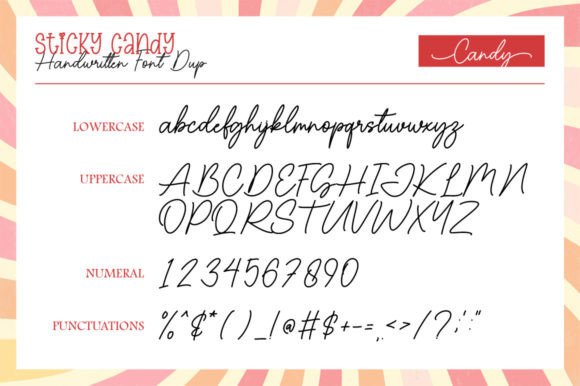 Sticky Candy
Handwritten Font Dup
Candy
LOWERCASE
abcdefghyklmnopqrstuvwxyz
UPPERCASE
ABCDEFGHIJKLMN
OPQRSTUVWXYZ
NUMERAL
1234567890
PUNCTUATIONS
%^$*()_!@#$+-=,.<>/?;':"